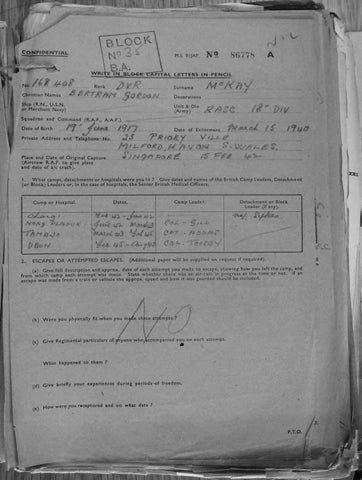 CONFIDENTIAL
BLOCK
No 35
B.A.
M.I. 9/JAP. No 86778 A
WRITE IN BLOCK CAPITAL LETTERS IN PENCIL.
No. 168408 Rank DVR Surname McKAY
Christian Names BERTRAM GORDON Decorations
Ship (R.N., U.S.N. or Merchant Navy) Unit & Div. (Army) RASC 18th DIV
Squadron and Command (R.A.F., A.A.F.)
Date of Birth 19th June 1917 Date of Enlistment March 15 1940
Private Address and Telephone No. 23 PRIORY VILLE
MILFORD HAVEN S. WALES.
Place and Date of Original Capture SINGAPORE 15 FEB 42
(Aircrew R.A.F. to give place and date of a/c crash).
1. What camps, detachments or hospitals were you in? Give dates and names of the British Camp Leaders, Detachment
(or Block) Leaders or, in the case of hospitals, the Senior British Medical Officers.
Camp or Hospital. Dates. Camp Leader. Detachment (or Block) Leader (if any).
Changi Feb 42 - June 42
NONG PLADUK June 42 COL. GILL
TAMAJO Feb 45
UBON Feb 45 - Aug 45 COL. TOOSEY
2. ESCAPES OR ATTEMPTED ESCAPES. (Additional paper will be supplied on request if required).
(a) Give full description and approx. date of each attempt you made to escape, showing how you left the camp, and
from which camp each attempt was made. State whether there was an air-raid in progress at the time or not. If an
escape was made from a train or vehicle the approx. speed and how it was guarded should be included.
NO
(b) Were you physically fit when you made these attempts?
(c) Give Regimental particulars of anyone who accompanied you on each attempt.
What happened to them?
(d) Give briefly your experiences during periods of freedom.
(e) How were you recaptured and on what date?
P.T.O.